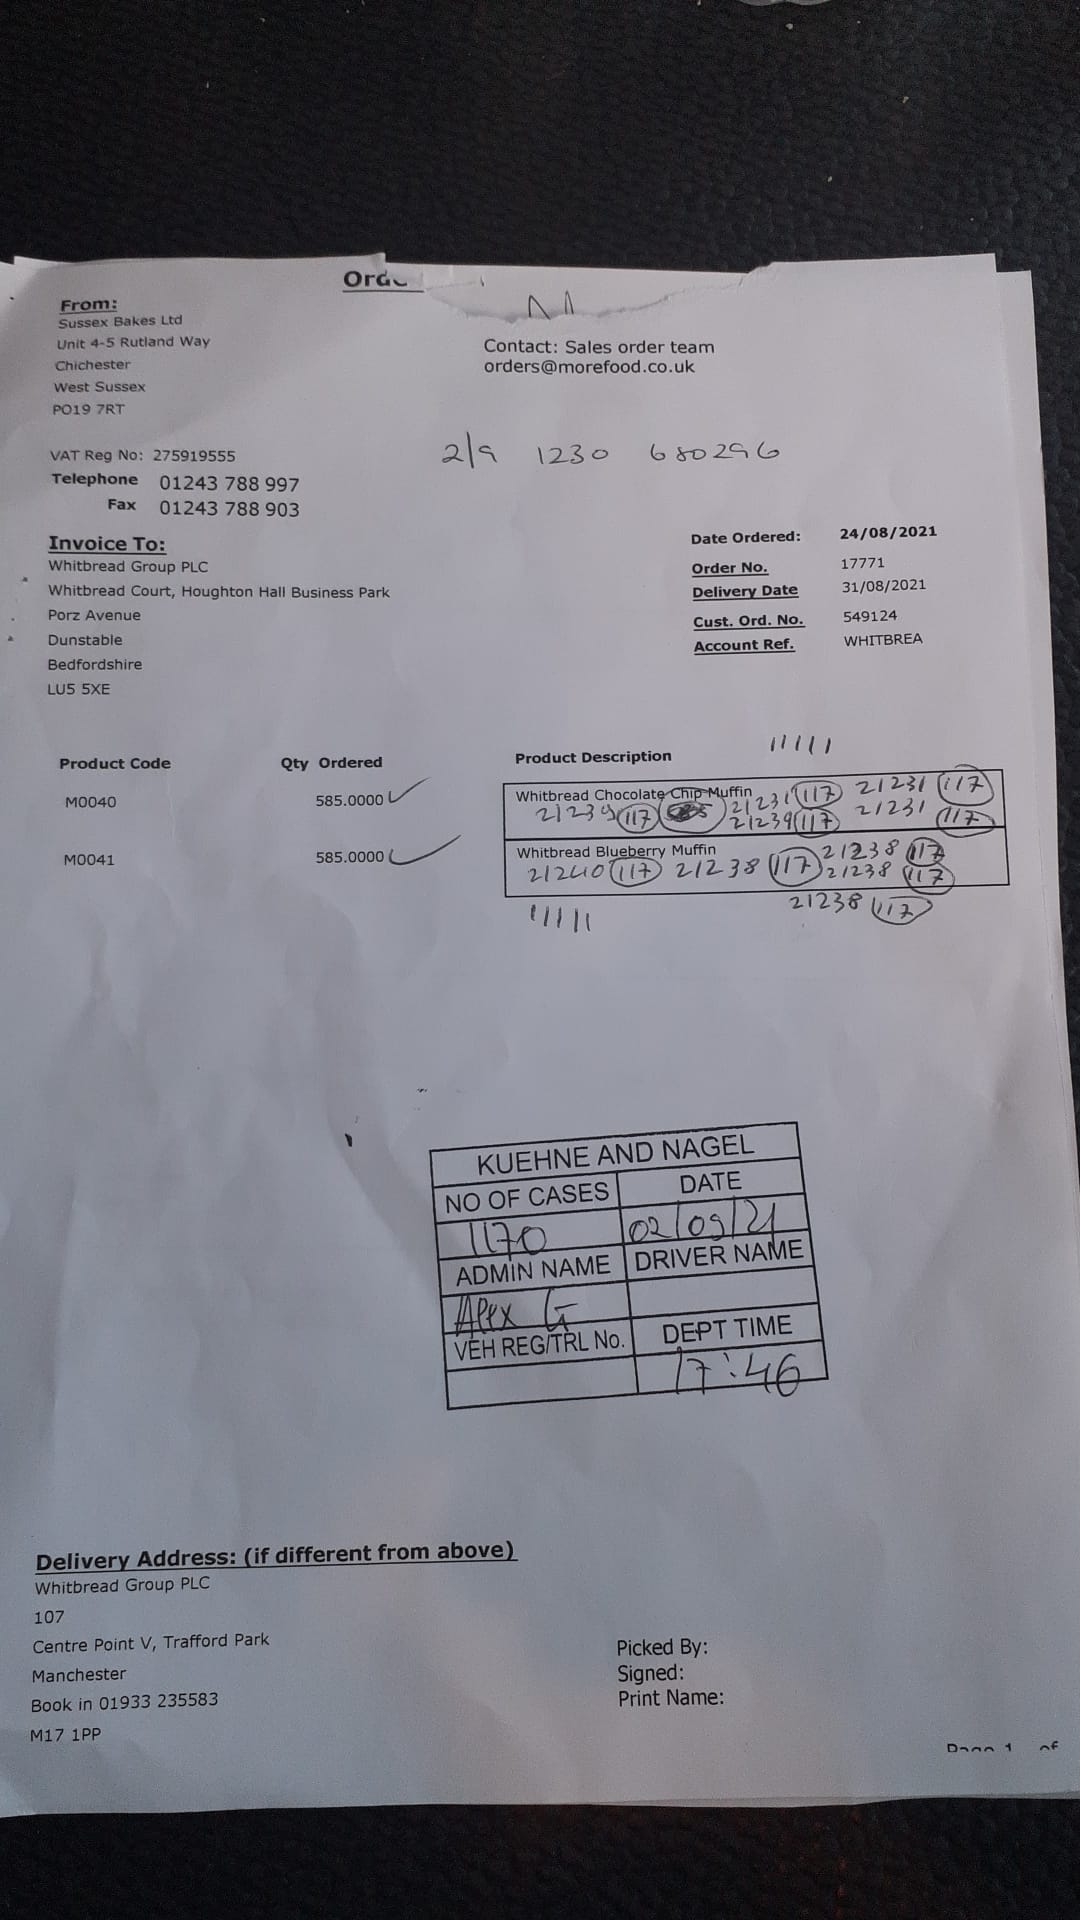 From:
Sussex Bakes Ltd
Unit 4-5 Rutland Way
Chichester
West Sussex
PO19 7RT
Contact: Sales order team
orders@morefood.co.uk
VAT Reg No: 275919555
Telephone 01243 788 997
Fax 01243 788 903
2/9 1230 680296
Invoice To:
Whitbread Group PLC
Whitbread Court, Houghton Hall Business Park
Porz Avenue
Dunstable
Bedfordshire
LU5 5XE
Date Ordered: 24/08/2021
Order No. 17771
Delivery Date 31/08/2021
Cust. Ord. No. 549124
Account Ref. WHITBREA
Product Code Qty Ordered Product Description
M0040 585.0000 Whitbread Chocolate Chip Muffin
21231 117 21231 117
117 21239 117 21231 117
M0041 585.0000 Whitbread Blueberry Muffin
21240 117 21238 117 21238 117
21238 117
21238 117
KUEHNE AND NAGEL
NO OF CASES DATE
1170 02/09/21
ADMIN NAME DRIVER NAME
Alex G
VEH REG/TRL No. DEPT TIME
17:46
Delivery Address: (if different from above)
Whitbread Group PLC
107
Centre Point V, Trafford Park
Manchester
Book in 01933 235583
M17 1PP
Picked By:
Signed:
Print Name:
Page 1 of